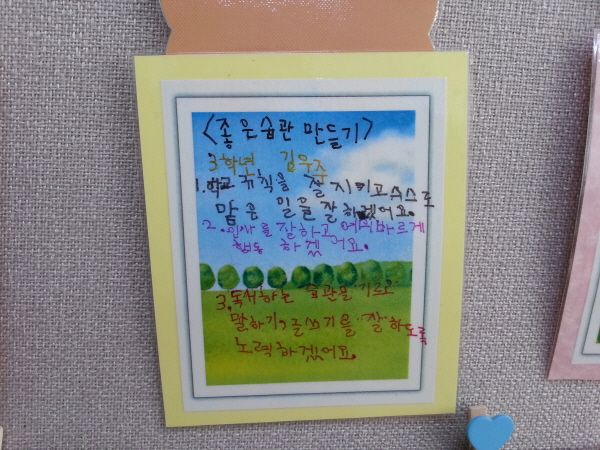 <좋은습관 만들기>
3학년 김우주
1. 학교 규칙을 잘 지키고 스스로
맡은 일을 잘 하겠어요.
2. 인사를 잘하고 예의바르게
행동 하겠어요.
3. 독서하는 습관을 기르고
말하기, 글쓰기를 잘하도록
노력하겠어요.